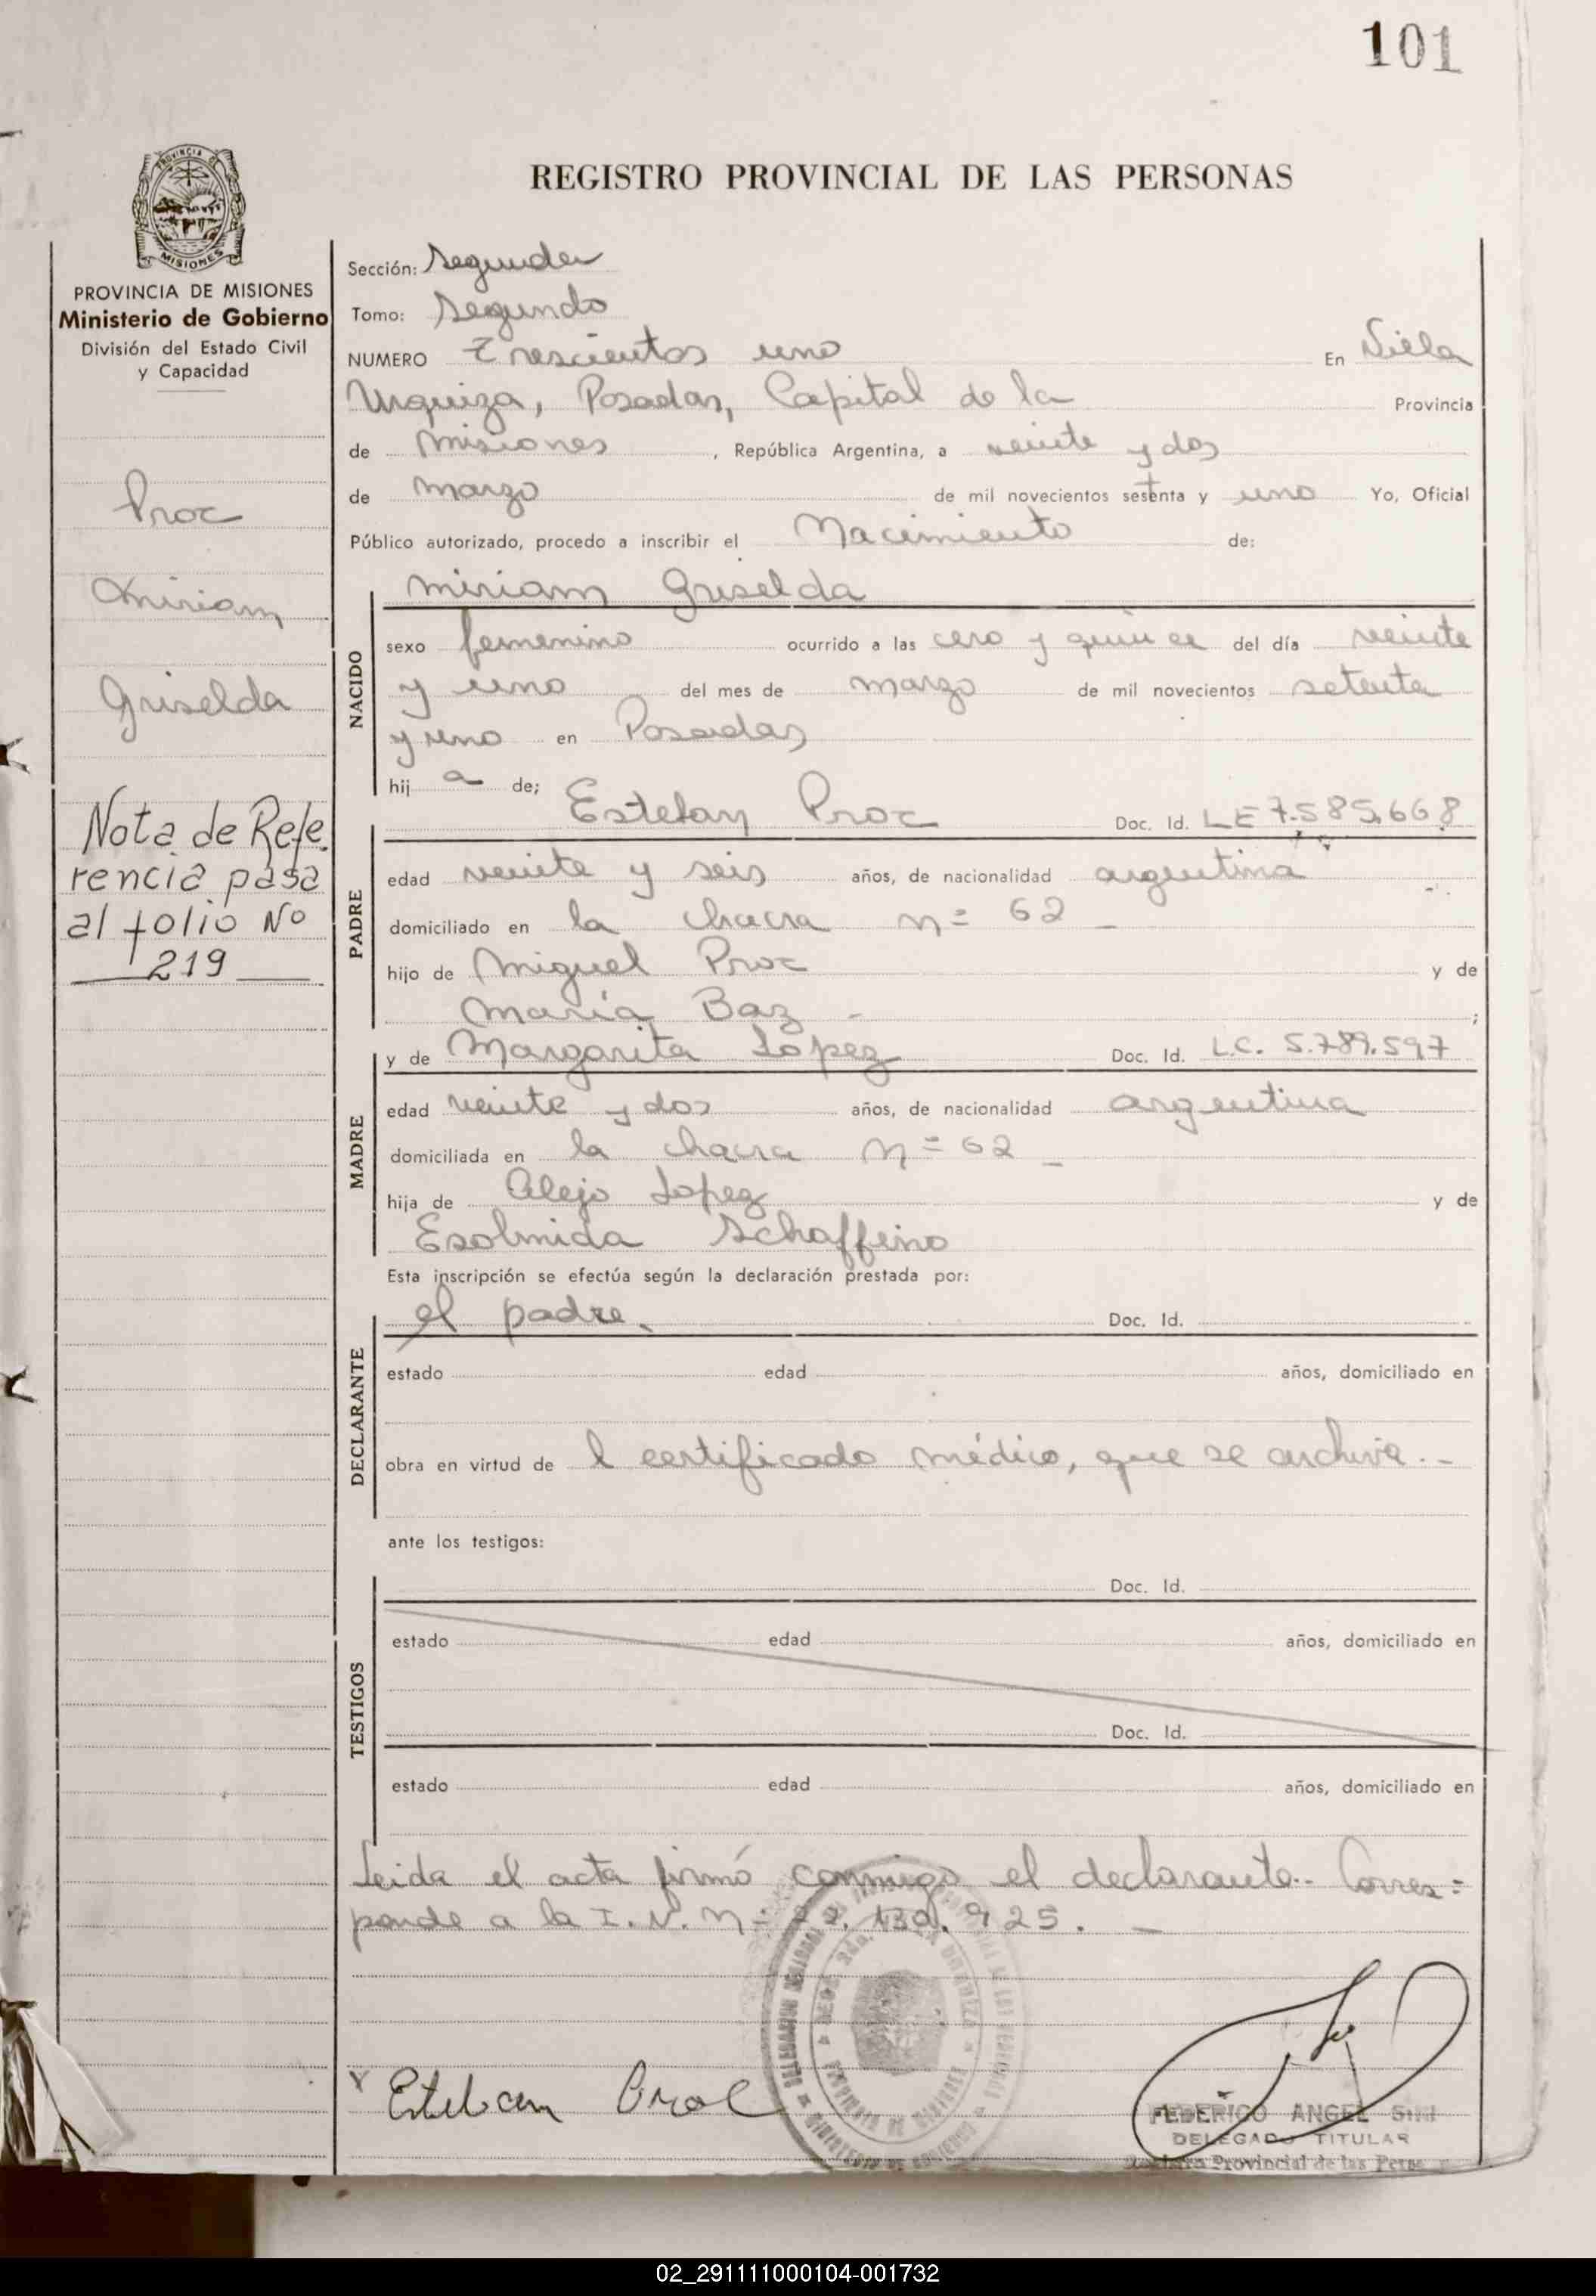 101
REGISTRO PROVINCIAL DE LAS PERSONAS
PROVINCIA DE MISIONES
PROVINCIA DE MISIONES
Ministerio de Gobierno
División del Estado Civil
y Capacidad
Proc
Miriam
Griselda
Nota de Refe
rencia pasa
al folio No
219
Sección: Segunda
Tomo: Segundo
NUMERO Trescientos uno En Villa
Urquiza, Posadas, Capital de la Provincia
de Misiones, República Argentina, a veinte y dos
de marzo de mil novecientos setenta y uno Yo, Oficial
Público autorizado, procedo a inscribir el Nacimiento de:
NACIDO
Miriam Griselda
sexo femenino ocurrido a las cero y quince del día veinte
y uno del mes de marzo de mil novecientos setenta
y uno en Posadas
hij a de;
PADRE
Esteban Proc Doc. Id. LE 7.585.668
edad veinte y seis años, de nacionalidad argentina
domiciliado en la chacra n= 62 _
hijo de Miguel Proc y de
María Baz - ;
MADRE
y de Margarita Lopez Doc. Id. L.C. 5.789.597
edad veinte y dos años, de nacionalidad argentina
domiciliada en la chacra n= 62 _
hija de Alejo Lopez y de
Esolmida Schaffino
Esta inscripción se efectúa según la declaración prestada por:
DECLARANTE
el padre. Doc. Id.
estado edad años, domiciliado en
obra en virtud de l certificado médico, que se archiva.-
ante los testigos:
TESTIGOS
Doc. Id.
estado edad años, domiciliado en
Doc. Id.
estado edad años, domiciliado en
Leida el acta firmó conmigo el declarante.- Corres=
ponde a la I.N. n= 22.130.925. _
Esteban Proc
FEDERICO ANGEL
DELEGADO TITULAR
Provincial de las
02_291111000104-001732